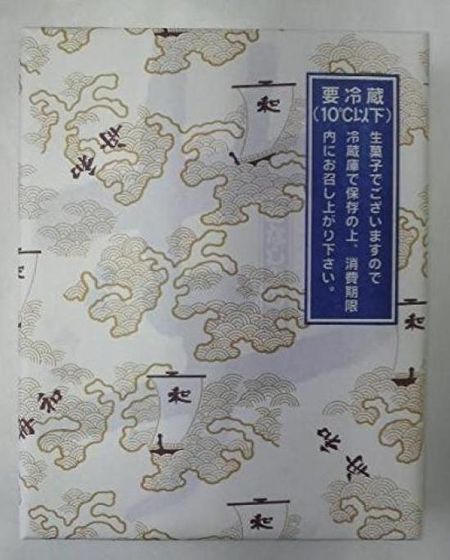 要冷蔵
(10℃以下)
生菓子でございますので
冷蔵庫で保存の上、消費期限
内にお召し上がり下さい。
和
和
和
和